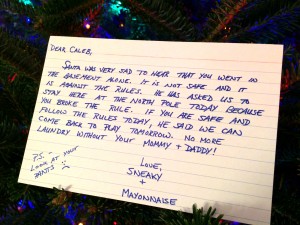 DEAR CALEB,
SANTA WAS VERY SAD TO HEAR THAT YOU WENT IN
THE BASEMENT ALONE. IT IS NOT SAFE AND IT
IS AGAINST THE RULES. HE HAS ASKED US TO
STAY HERE AT THE NORTH POLE TODAY BECAUSE
YOU BROKE THE RULE. IF YOU ARE SAFE AND
FOLLOW THE RULES TODAY, HE SAID WE CAN
COME BACK TO PLAY TOMORROW. NO MORE
LAUNDRY WITHOUT YOUR MOMMY + DADDY!
LOVE,
SNEAKY
+
MAYONNAISE
P.S. -
LOOK AT YOUR
PANTS :)